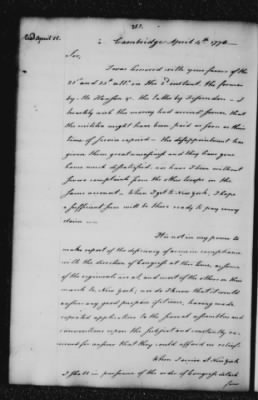 Cambridge April 4th 1776
Sir,
I was honored with your favors of the
25th and 27th ulto. on the 2d instant, the former
by Mr. Hanson &c. the latter by Fessenden — I
heartily wish the money had arrived sooner that
the militia might have been paid as soon as their
time of service expired — the disappointment has
given them great uneasiness and they have gone
home much dissatisfied, nor have I been without
severe complaints from the other troops on the
same account — When I get to New York, I hope
a sufficient sum will be there ready to pay every
claim —
It is not in my power to
make report of the deficiency of arms in compliance
with the direction of Congress at this time, as some
of the regiments are at, and most of the others on their
march to New York, nor do I know that it would
answer any good purpose if it were, having made
repeated applications to the several assemblies and
conventions upon the subject and constantly re-
ceived for answer that they could afford no relief.
When I arrive at New York
I shall in pursuance of the order of Congress detach
four